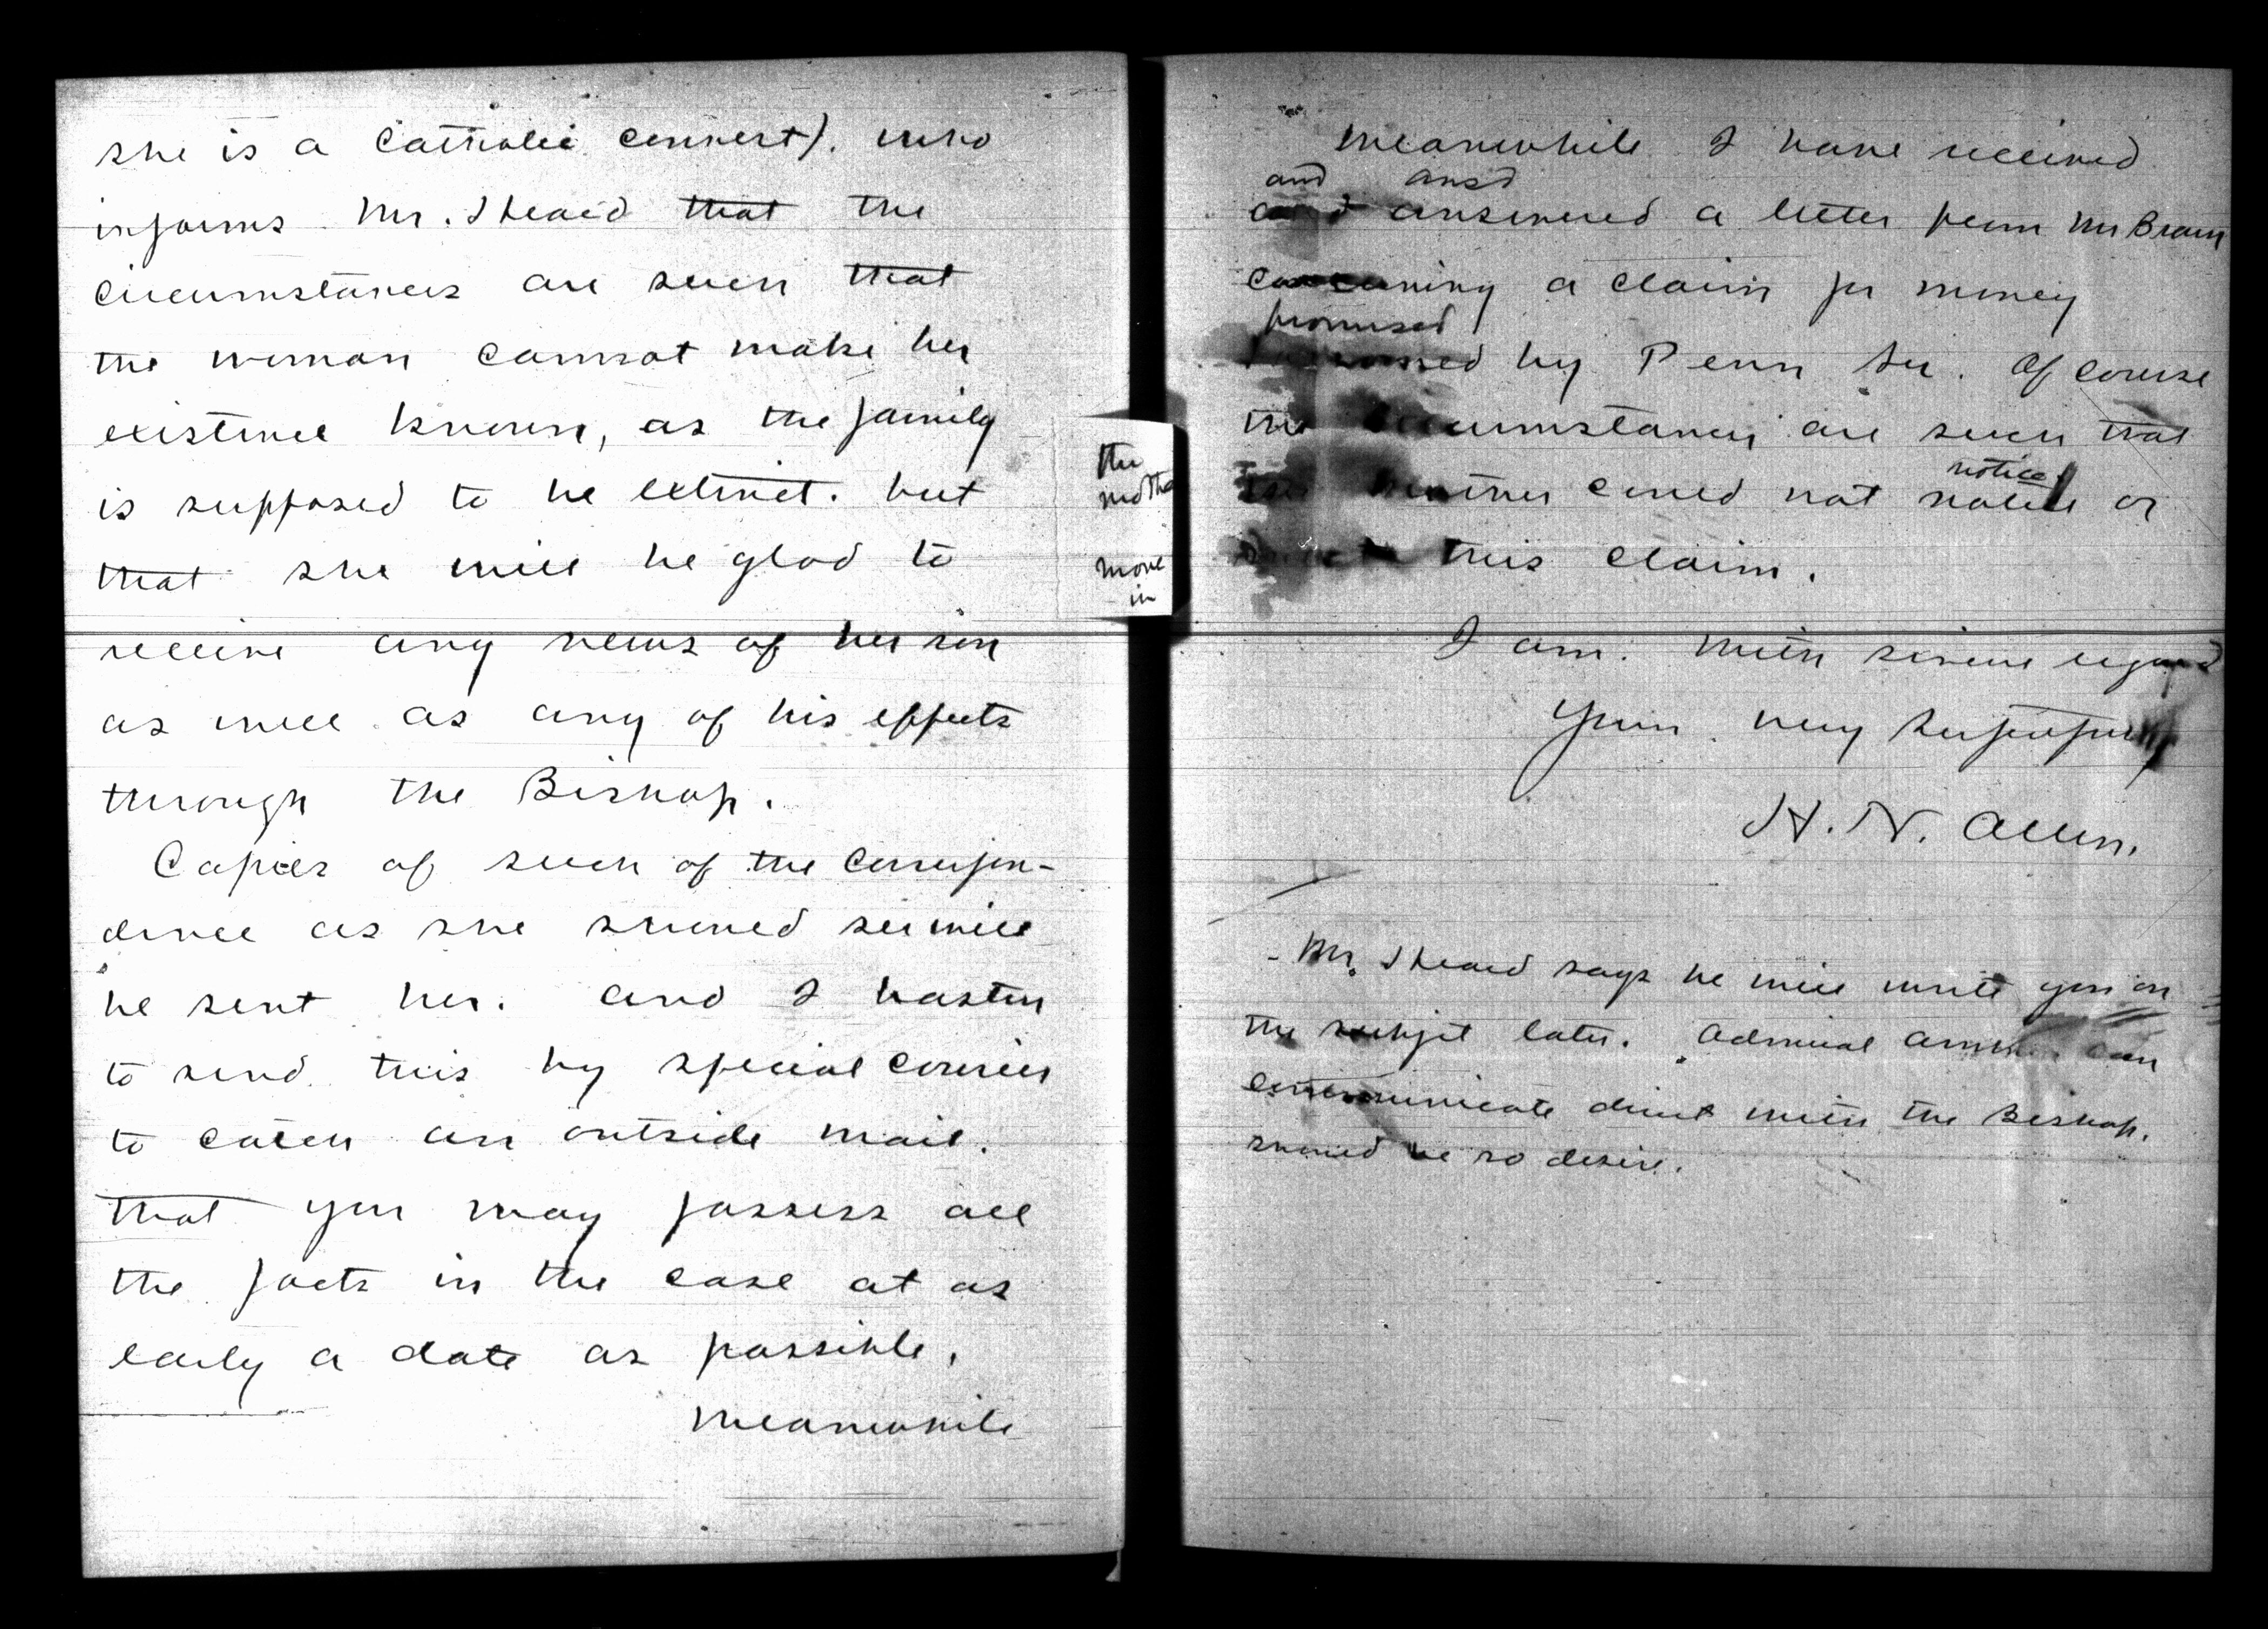 she is a Catholic convert). who
informs Mr. Sheard that the
circumstances are such that
the woman cannot make her
existence known, as the family
is supposed to be extinct. but
that she will be glad to
receive any news of her son
as well as any of his effects
through the Bishop.
Copies of such of the correspon-
dence as she should see will
be sent her. and I hasten
to send this by special courier
to catch an outside mail.
that you may possess all
the facts in the case at as
early a date as possible.
Meanwhile
the
mother
move
in
Meanwhile I have received
and ansd
and answered a letter from Mr Brown
concerning a claim for money
promised
promised by Penn Sr. Of course
the circumstances are such that
notice
the mother could not notice or
this claim.
I am. With sincere regard
Yours very respectfully
H. N. Allen.
- Mr. Sheard says he will write you on
the subject later. Admiral Ammen can
communicate direct with the Bishop.
should he so desire.